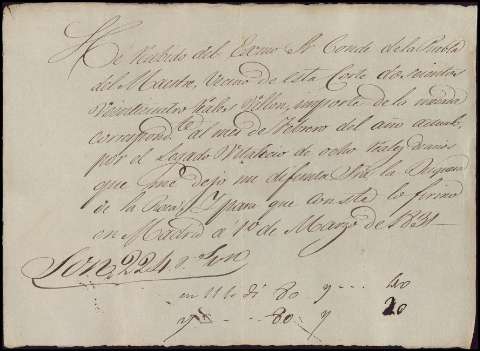 He Recibido del Exmo Sr Conde de la Puebla
del Maestre, Vecino de esta Corte doscientos
Veinticuatro Reales Vellon, importe de la
correspondte al mes de Febrero del año actual
por el Legado Vitalicio de ocho Reales diarios
que me dejo mi difunta Sra la Duquesa
de la Roca; Y para que conste lo firmo
en Madrid a 1º de Marzo de 1831
Son 224 rs vn
en 11 80 y 40
80 y 20